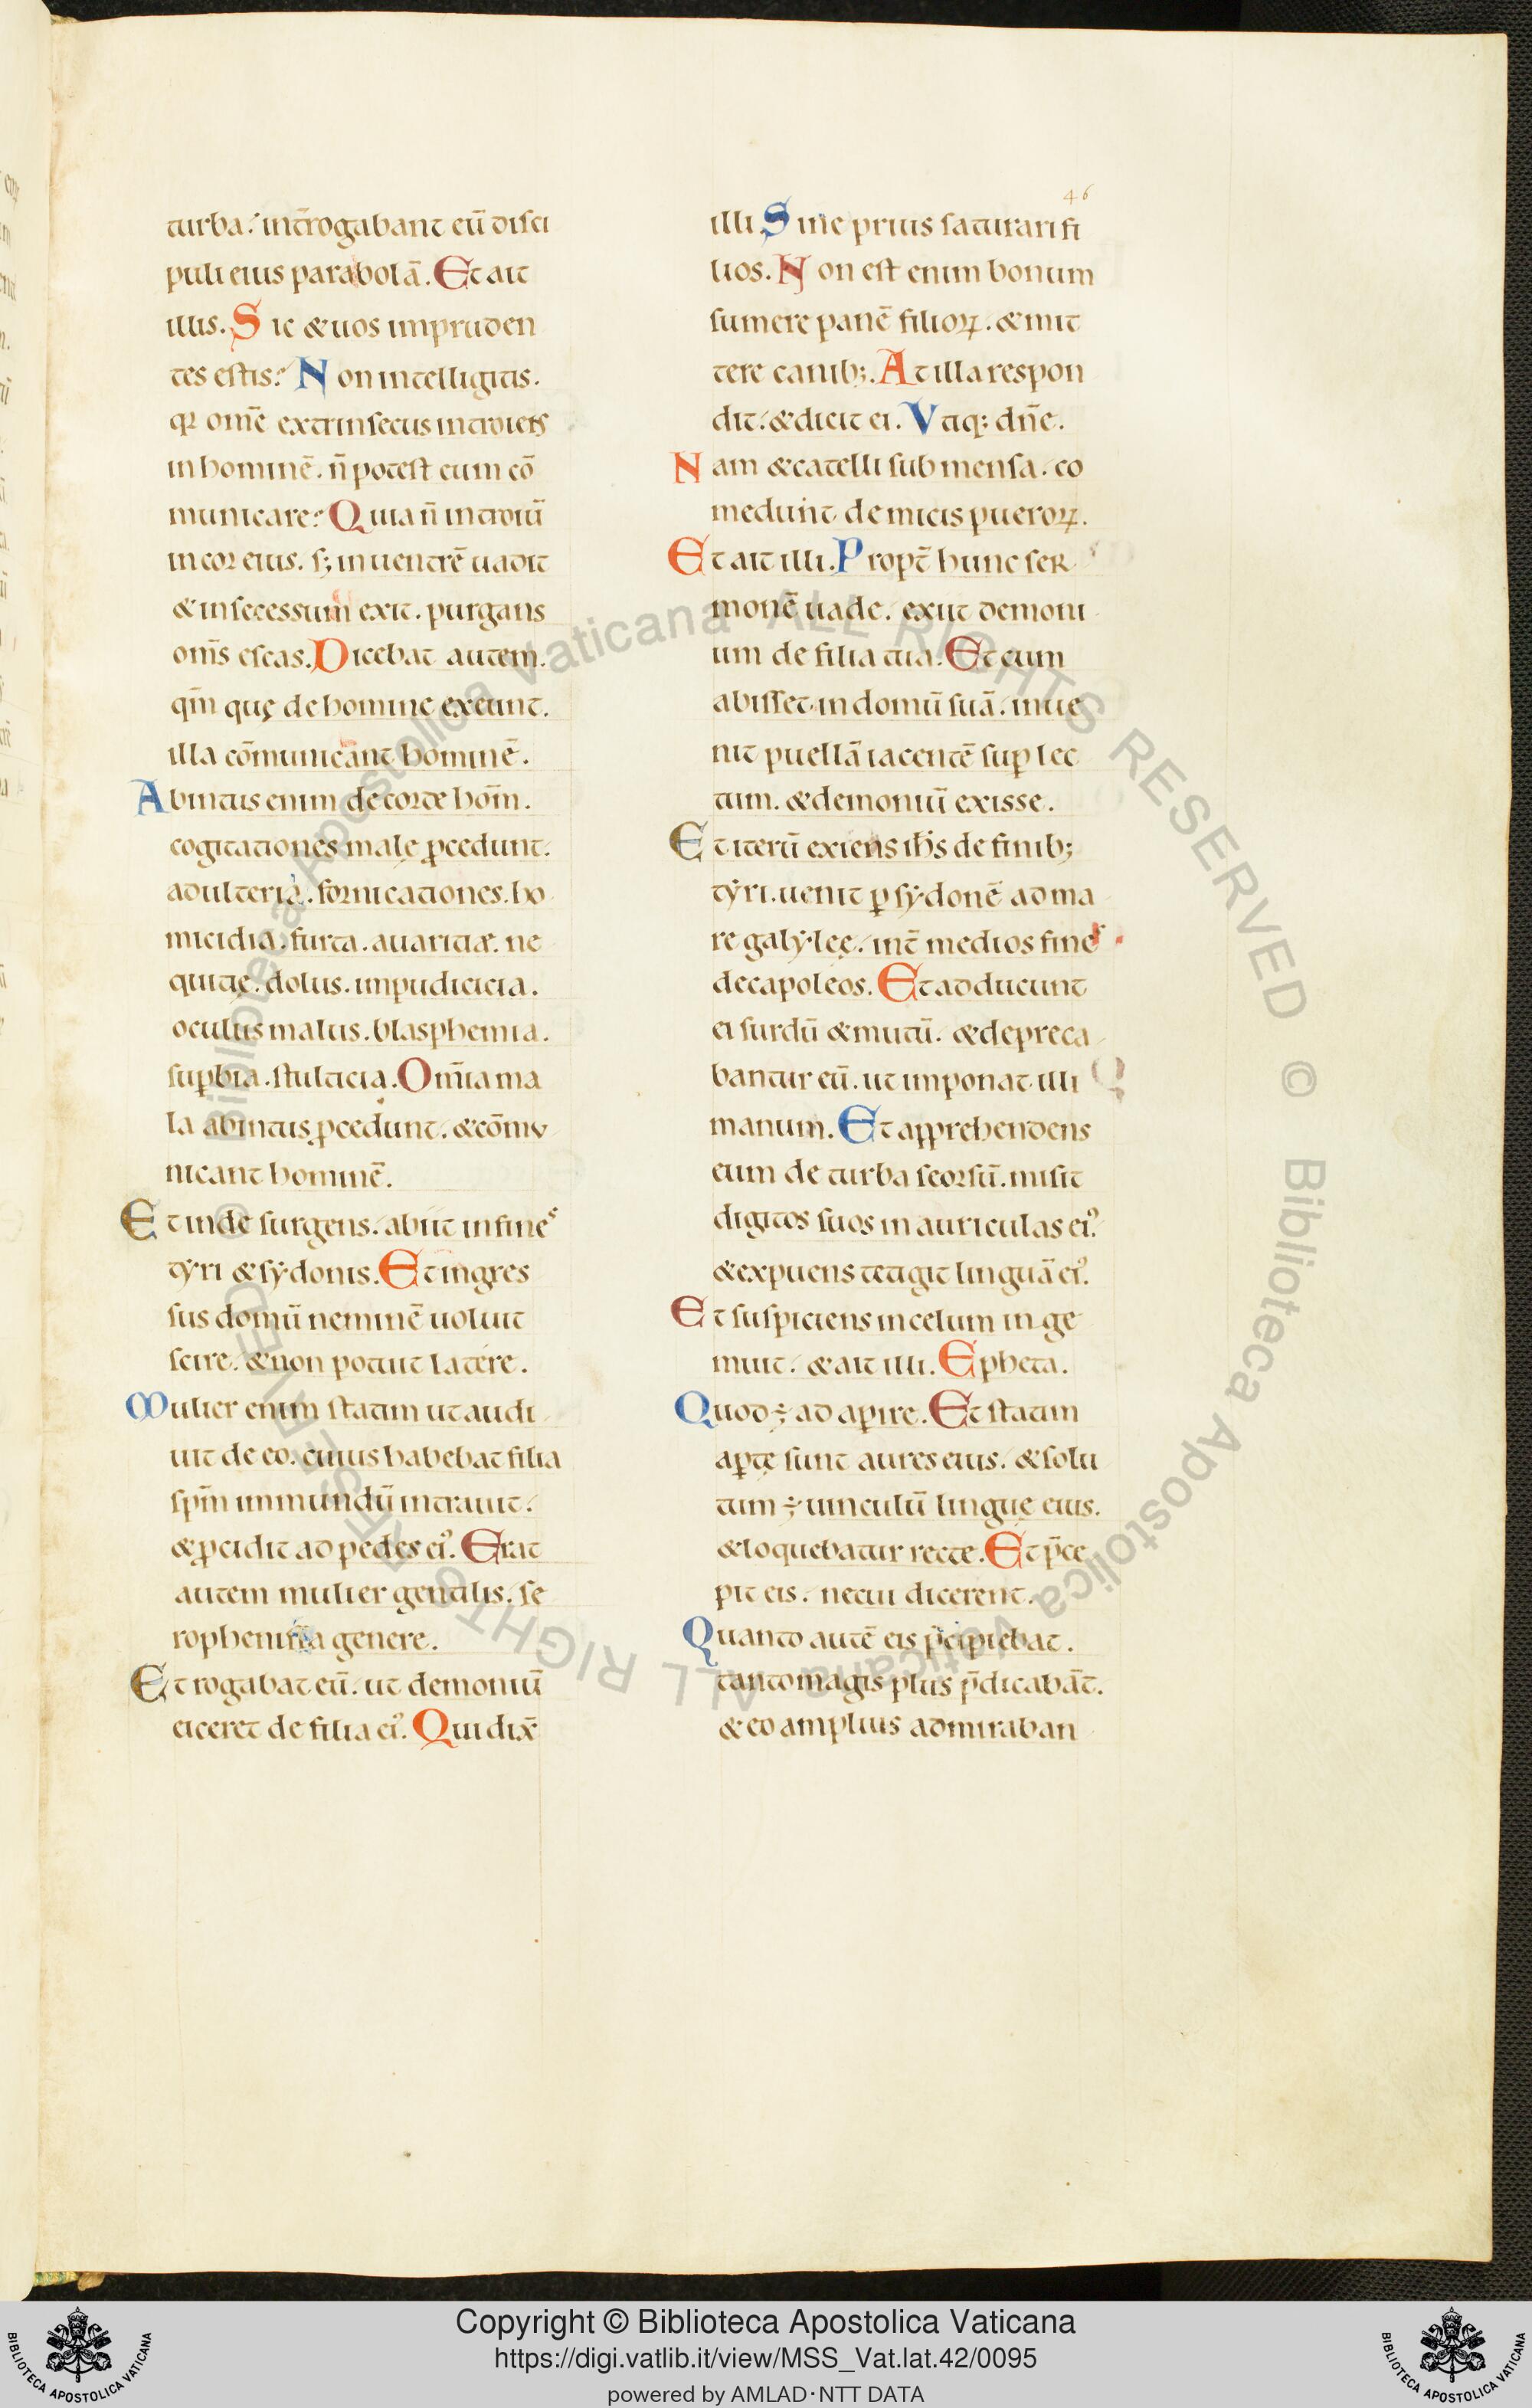 46
turba. int̄rogabant eū disci
puli eius parabolā. Et ait
illis. Sic & uos impruden
tes estis? Non intelligitis.
qꝛ om̄e extrinsecus introiens
in hominē. n̄ potest eum cō
municare? Quia n̄ introiuī
in cor eius. s; in uentrē uadit
& in secessum exit. purgans
om̄s escas. Dicebat autem.
qm̄ quę de homine exeunt.
illa cōmunicant hominē.
Abintus enim de corde hoīm.
cogitationes malę ꝓcedunt.
adulteria. fornicationes. ho
micidia. furta. auaritiæ. ne
quitię. dolus. impudicicia.
oculus malus. blasphemia.
suꝑbia. stulticia. Om̄ia ma
la abintus ꝓcedunt. & cōmu
nicant hominē.
Et inde surgens. abiit in fines
tẏri & sẏdonis. Et ingres
sus domū neminē uoluit
scire. & non potuit latere.
Mulier enim statim ut audi
uit de eo. cuius habebat filia
spm̄ immundū intrauit.
& ꝓcidit ad pedes eiꝰ. Erat
autem mulier gentilis. se
rophenissa genere.
Et rogabat eū. ut demoniū
eiceret de filia eiꝰ. Qui dix̄
illi. Sine prius saturari fi
lios. Non est enim bonum
sumere panē filioꝝ. & mit
tere canib;. At illa respon
dit. & dicit ei. Vtiq: dn̄e.
Nam & catelli sub mensa. co
medunt de micis pueroꝝ.
Et ait illi. Propt̄ hunc ser
monē uade. exiit demoni
um de filia tua. Et cum
abisset in domū suā. inue
nit puellā iacentē suꝑ lec
tum. & demoniū exisse.
Et iterū exiens ih̄s de finib;
tẏri. uenit ꝑ sẏdonē ad ma
re galẏleę. int̄ medios fines
decapoleos. Et adducunt
ei surdū & mutū. & depreca
bantur eū. ut imponat illi
manum. Et apprehendens
eum de turba seorsū. misit
digitos suos in auriculas eiꝰ.
& expuens tetigit linguā eiꝰ.
Et suspiciens in celum inge
muit. & ait illi. Epheta.
Quod ÷ adaꝑire. Et statim
aꝑtę sunt aures eius. & solu
tum ÷ uinculū linguę eius.
& loquebatur recte. Et p̄ce
pit eis. ne cui dicerent.
Quanto autē eis p̄cipiebat.
tanto magis plus p̄dicabāt.
& eo amplius admiraban
Copyright © Biblioteca Apostolica Vaticana
https://digi.vatlib.it/view/MSS_Vat.lat.42/0095
powered by AMLAD·NTT DATA
BIBLIOTECA APOSTOLICA VATICANA
BIBLIOTECA APOSTOLICA VATICANA
© Biblioteca Apostolica Vaticana ALL RIGHTS RESERVED © Biblioteca Apostolica Vaticana ALL RIGHTS RESERVED